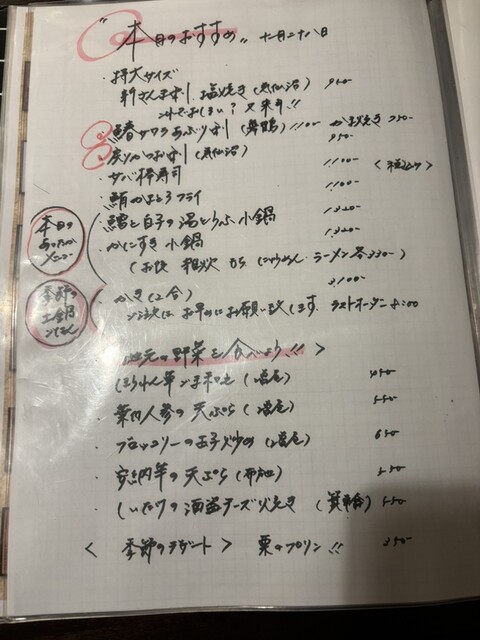 "本日のおすすめ" 十一月二十八日
・特大サイズ
新さんま刺し 塩焼き (気仙沼) 950-
又来年!!
・鰆サワラあぶり刺し (舞鶴) 1100- かま焼き 750-
・戻りかつお刺し (気仙沼) 950-
・サバ棒寿司 1100- <税込>
・鮪かまとろフライ 1100-
本日の
あったか
メニュー
・鱈と白子の湯とうふ小鍋 1320-
・かにすき小鍋 1320-
(お後 雑炊 にゅうめん・ラーメン 各330-)
季節の
土鍋
ごはん
・かき (2合) 2100-
ご注文は お早めにお願い致します ラストオーダー 8:00
地元の野菜を食べよう!! >
・ほうれん草ごま和え 450-
・葉付人参の天ぷら 550-
・ブロッコリーの玉子炒め 650-
・安納芋の天ぷら 550-
・しいたけの酒盗チーズ焼き (箕輪) 550-
< 季節のデザート > 栗のプリン!! 350-